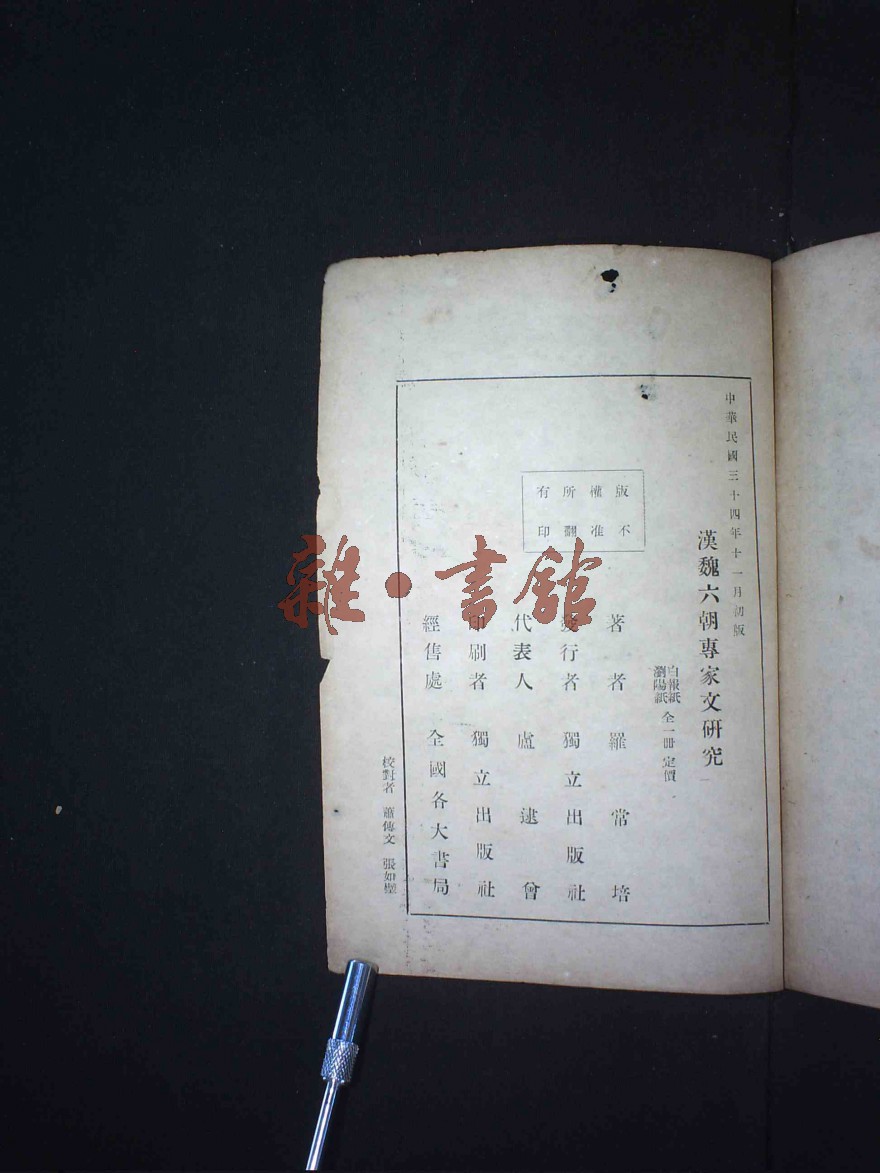 中華民國三十四年十一月初版
漢魏六朝專家文研究
白報紙
瀏陽紙
全一冊 定價
版權所有
不准翻印
著者 羅常培
發行者 獨立出版社
代表人 盧逮曾
印刷者 獨立出版社
經售處 全國各大書局
校對者 蕭傳文 張如
雜·書館